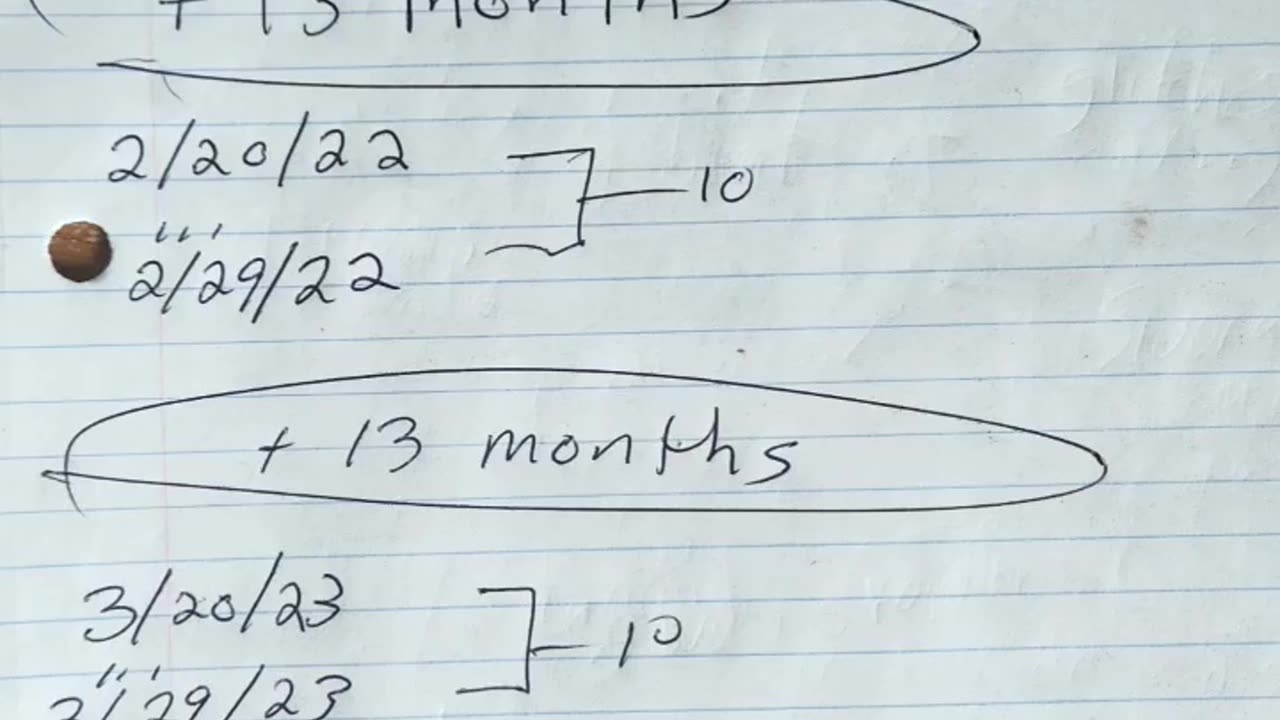 + 13 months
2/20/22
10
2/29/22
+ 13 months
3/20/23
10
3/29/23